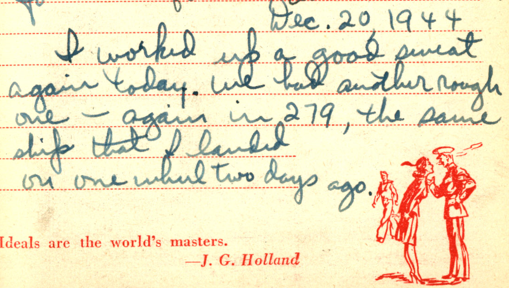 Dec. 20, 1944
I worked up a good sweat
again today. We had another rough
one — again in 279, the same
ship that I landed
on one wheel two days ago.
Ideals are the world's masters.
—J. G. Holland